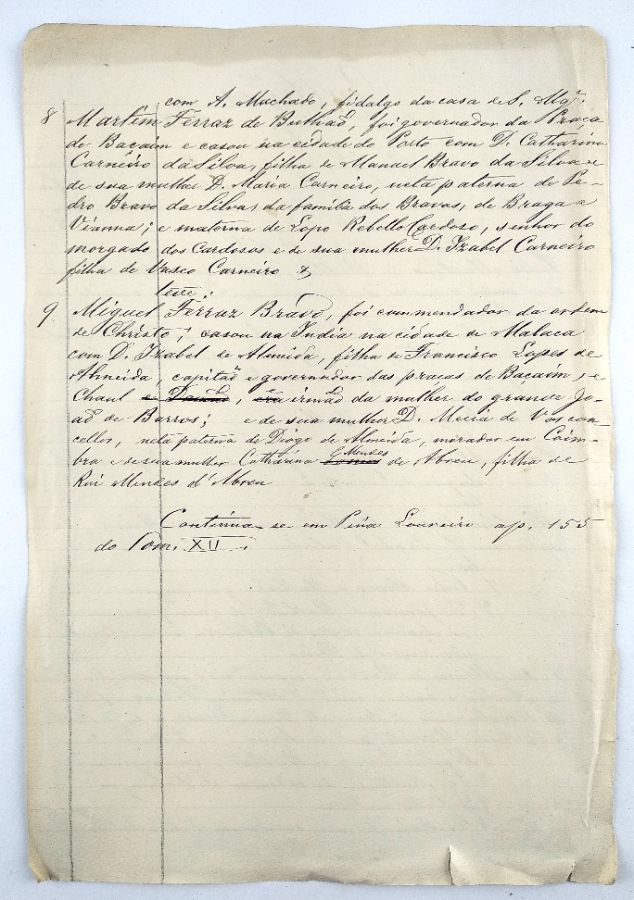 com A. Machado, fidalgo da casa de S. Mag.
8 Martim Ferraz de Bulhaõ, foi governador da Praça
de Bacaim e casou na cidade do Porto com D. Catharina
Carneiro da Silva, filha de Manuel Bravo da Silva e
de sua mulher D. Maria Carneiro, neta paterna de Pe-
dro Bravo da Silva, da familia dos Bravos, de Braga a
Vianna; e materna de Lopo Rebello Cardoso, senhor do
morgado dos Cardosos e de sua mulher D. Izabel Carneiro
filha de Vasco Carneiro &
teve:
9 Miguel Ferraz Bravo, foi commendador da ordem
de Christo; casou na India na cidade de Malaca
com D. Izabel de Almeida, filha de Francisco Lopes de
Almeida, capitaõ e governador das praças de Bacaim, e
Chaul e, irmaõ da mulher do grande Jo-
aõ de Barros; e de sua mulher D. Mecia de Vascon-
cellos, neta paterna de Diogo de Almeida, morador em Coim-
bra e de sua mulher Catharina Gomes Mendes de Abreu, filha de
Rui Mendes d'Abreu
Continua-se em Pina Loureiro a p. 155
do Tom. XII.